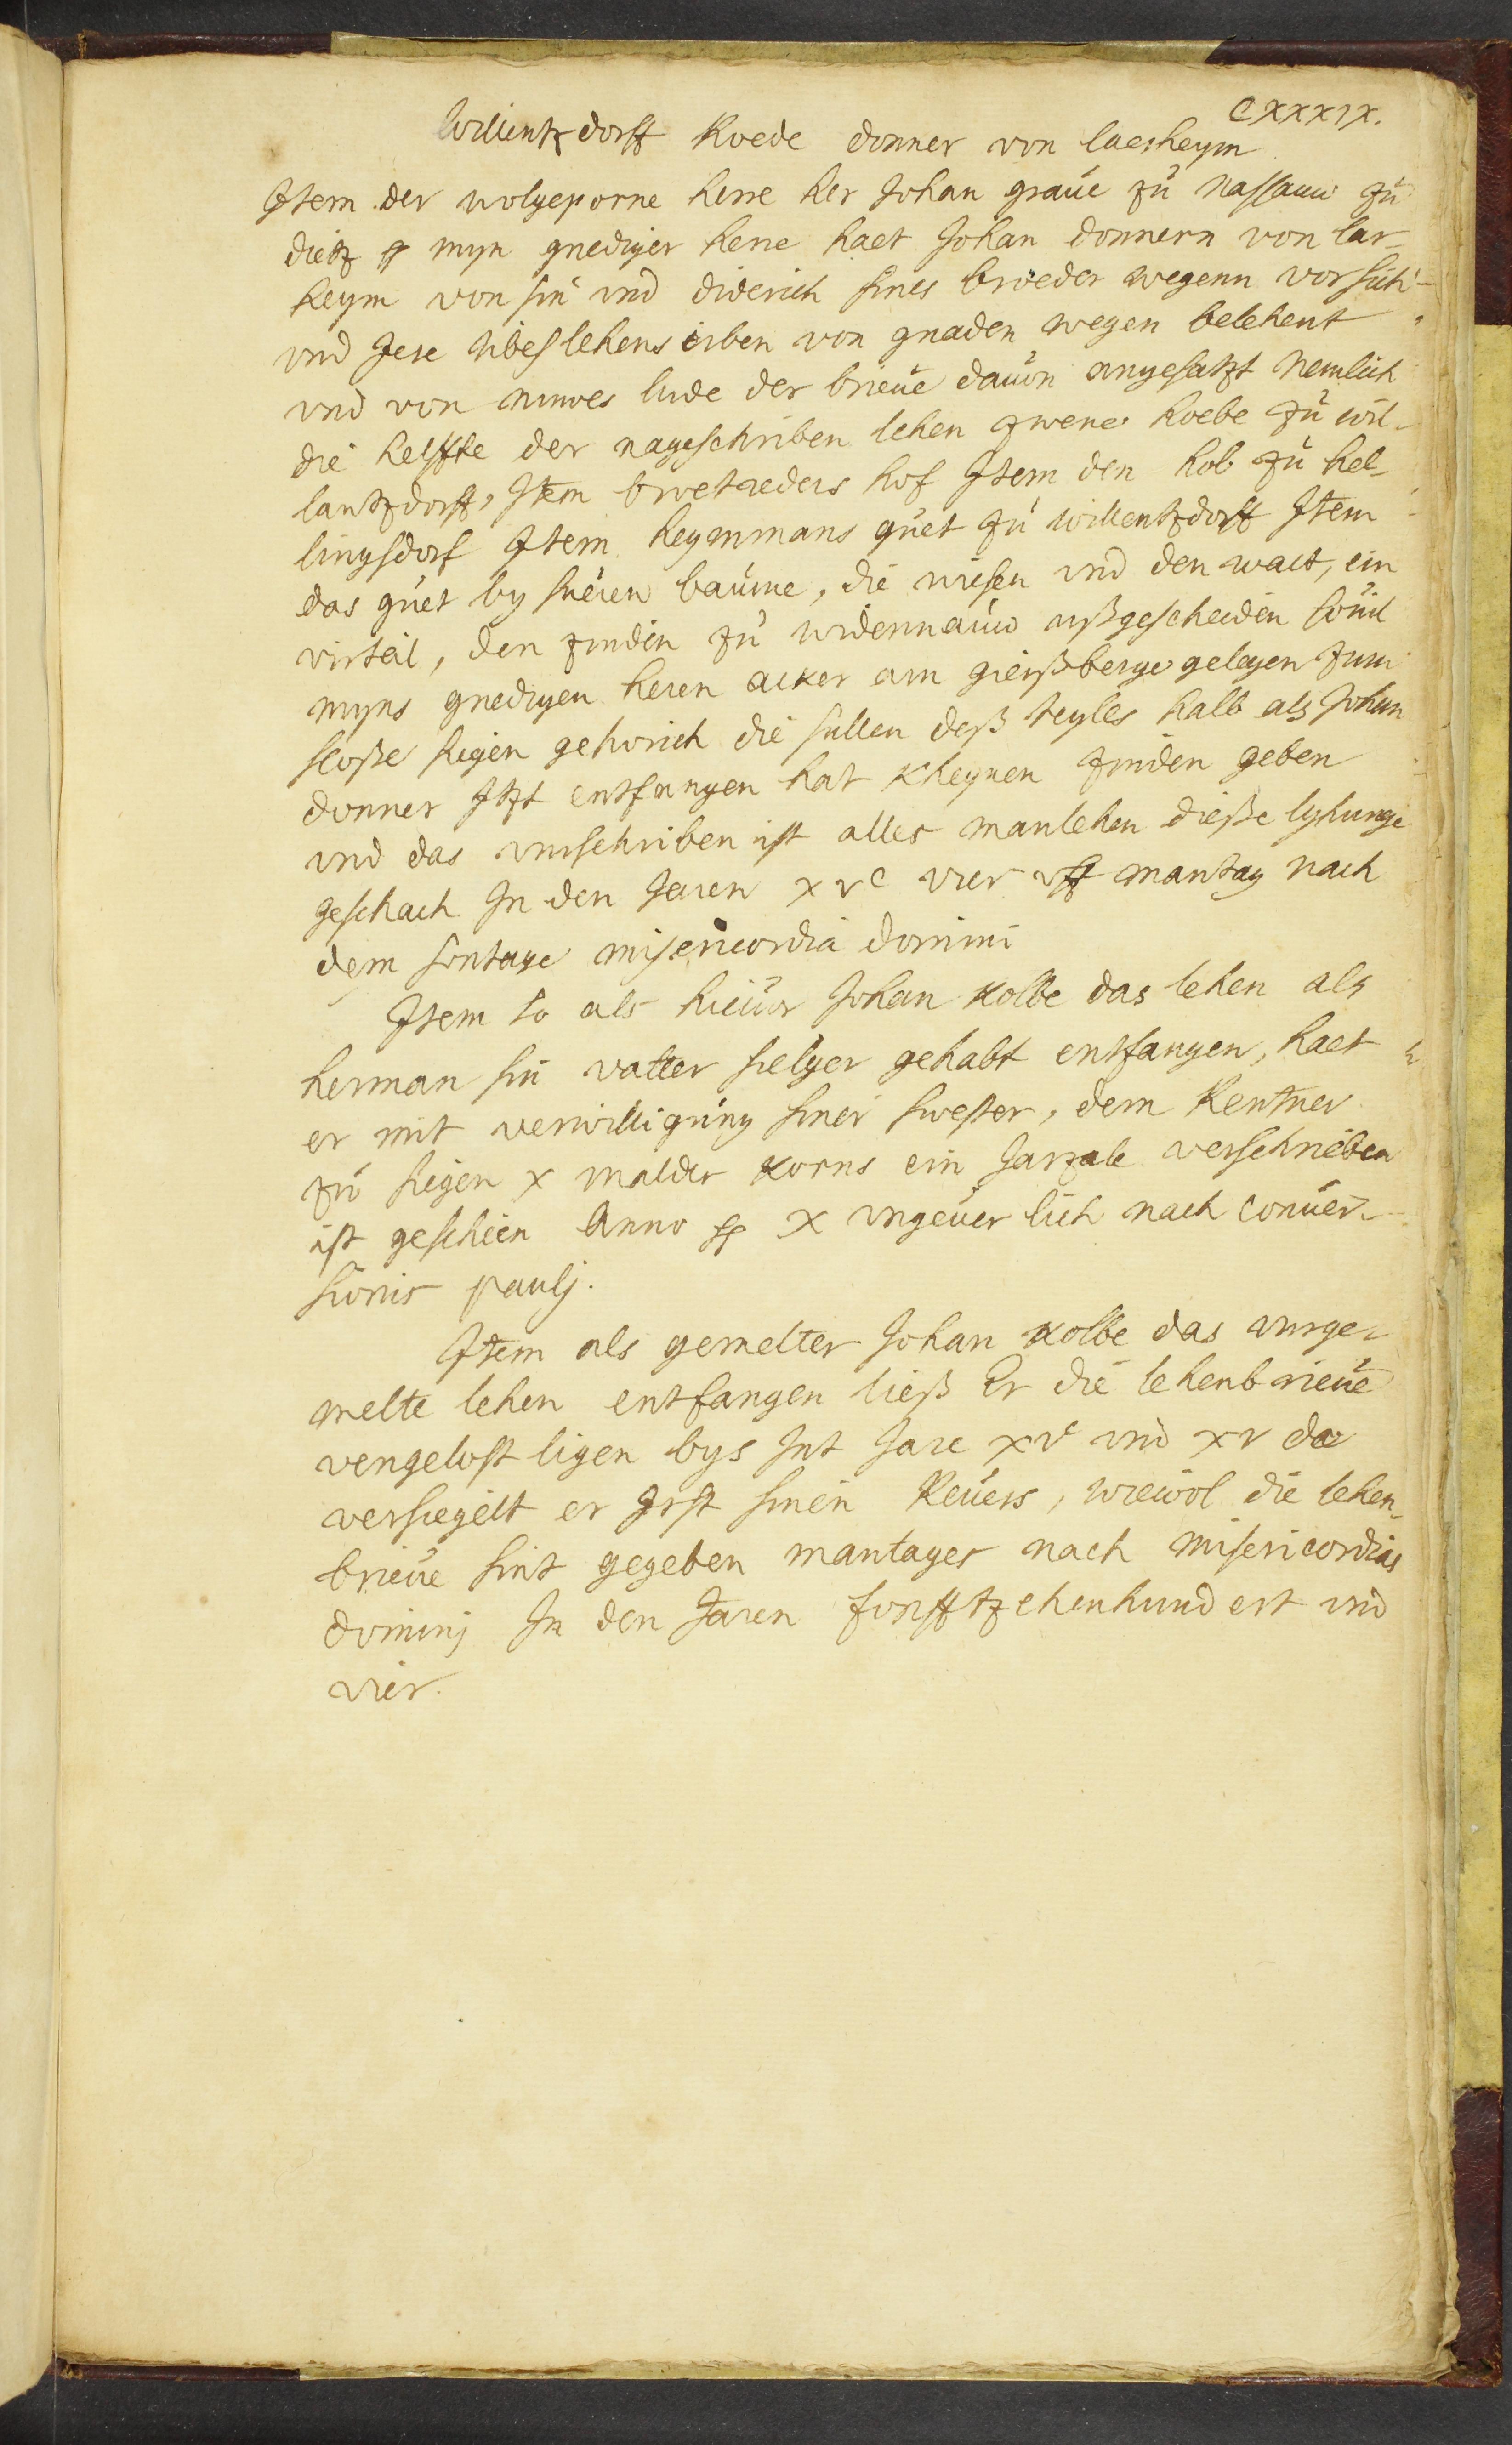 CXXXIX.
Willentzdorff Roede donner von laerheym
Jtem der wolgeporne herre her Johan graue zu Nassauw zu
dietz ꝛc myn gnediger herre haet Johan donnern von lar-
heym von sin vnd diderich sines broeder wegenn vor sich
vnd Jere libeslehens erben von gnaden wegen belehent
vnd von nuwes lude der brieue dauon angesatzt Nemlich
die helffte der nageschriben lehen zwene hoebe zu wil-
lantzdorff, Jtem broetreders hof Jtem den hob zu hel-
lingsdorf Jtem heymmans guet zu willentzdorff Jtem
das guet by sueren baume, die wiesen vnd den walt, ein
virteil, den zenden zu widennauw vßgescheiden souil
myns gnedigen heren acker am gierßberge gelegen zum
sloße Sigen gehorich die sullen deß teyles halb als Johan
donner Jtzt entfangen hat kheynen zenden geben
vnd das vurschriben ist alles manlehen dieße lyhunge
geschach Jn den Jaren xvc vier vff mantag nach
dem sontage misericordia domini
Jtem so als hieuor Johan kolbe das lehen als
herman sin vatter sielger gehabt entfangen, haet
er mit verwilligung siner swester, dem Rentner
zu sigen x malder korns ein Jarzale verschrieben
ist geschien Anno ꝛc x vngeuerlich nach conuer-
sionis paulj.
Jtem als gemelter Johan kolbe das vurge-
melte lehen entfangen ließ Er die lehenbrieue
vengelost ligen bys Jnt Jare xvc vnd xv da
versiegelt er Jrst sinen Reuers, wiewol die lehen-
brieue sint gegeben mantages nach misericordias
dominj Jn den Jaren funfftzehenhundert vnd
vier.